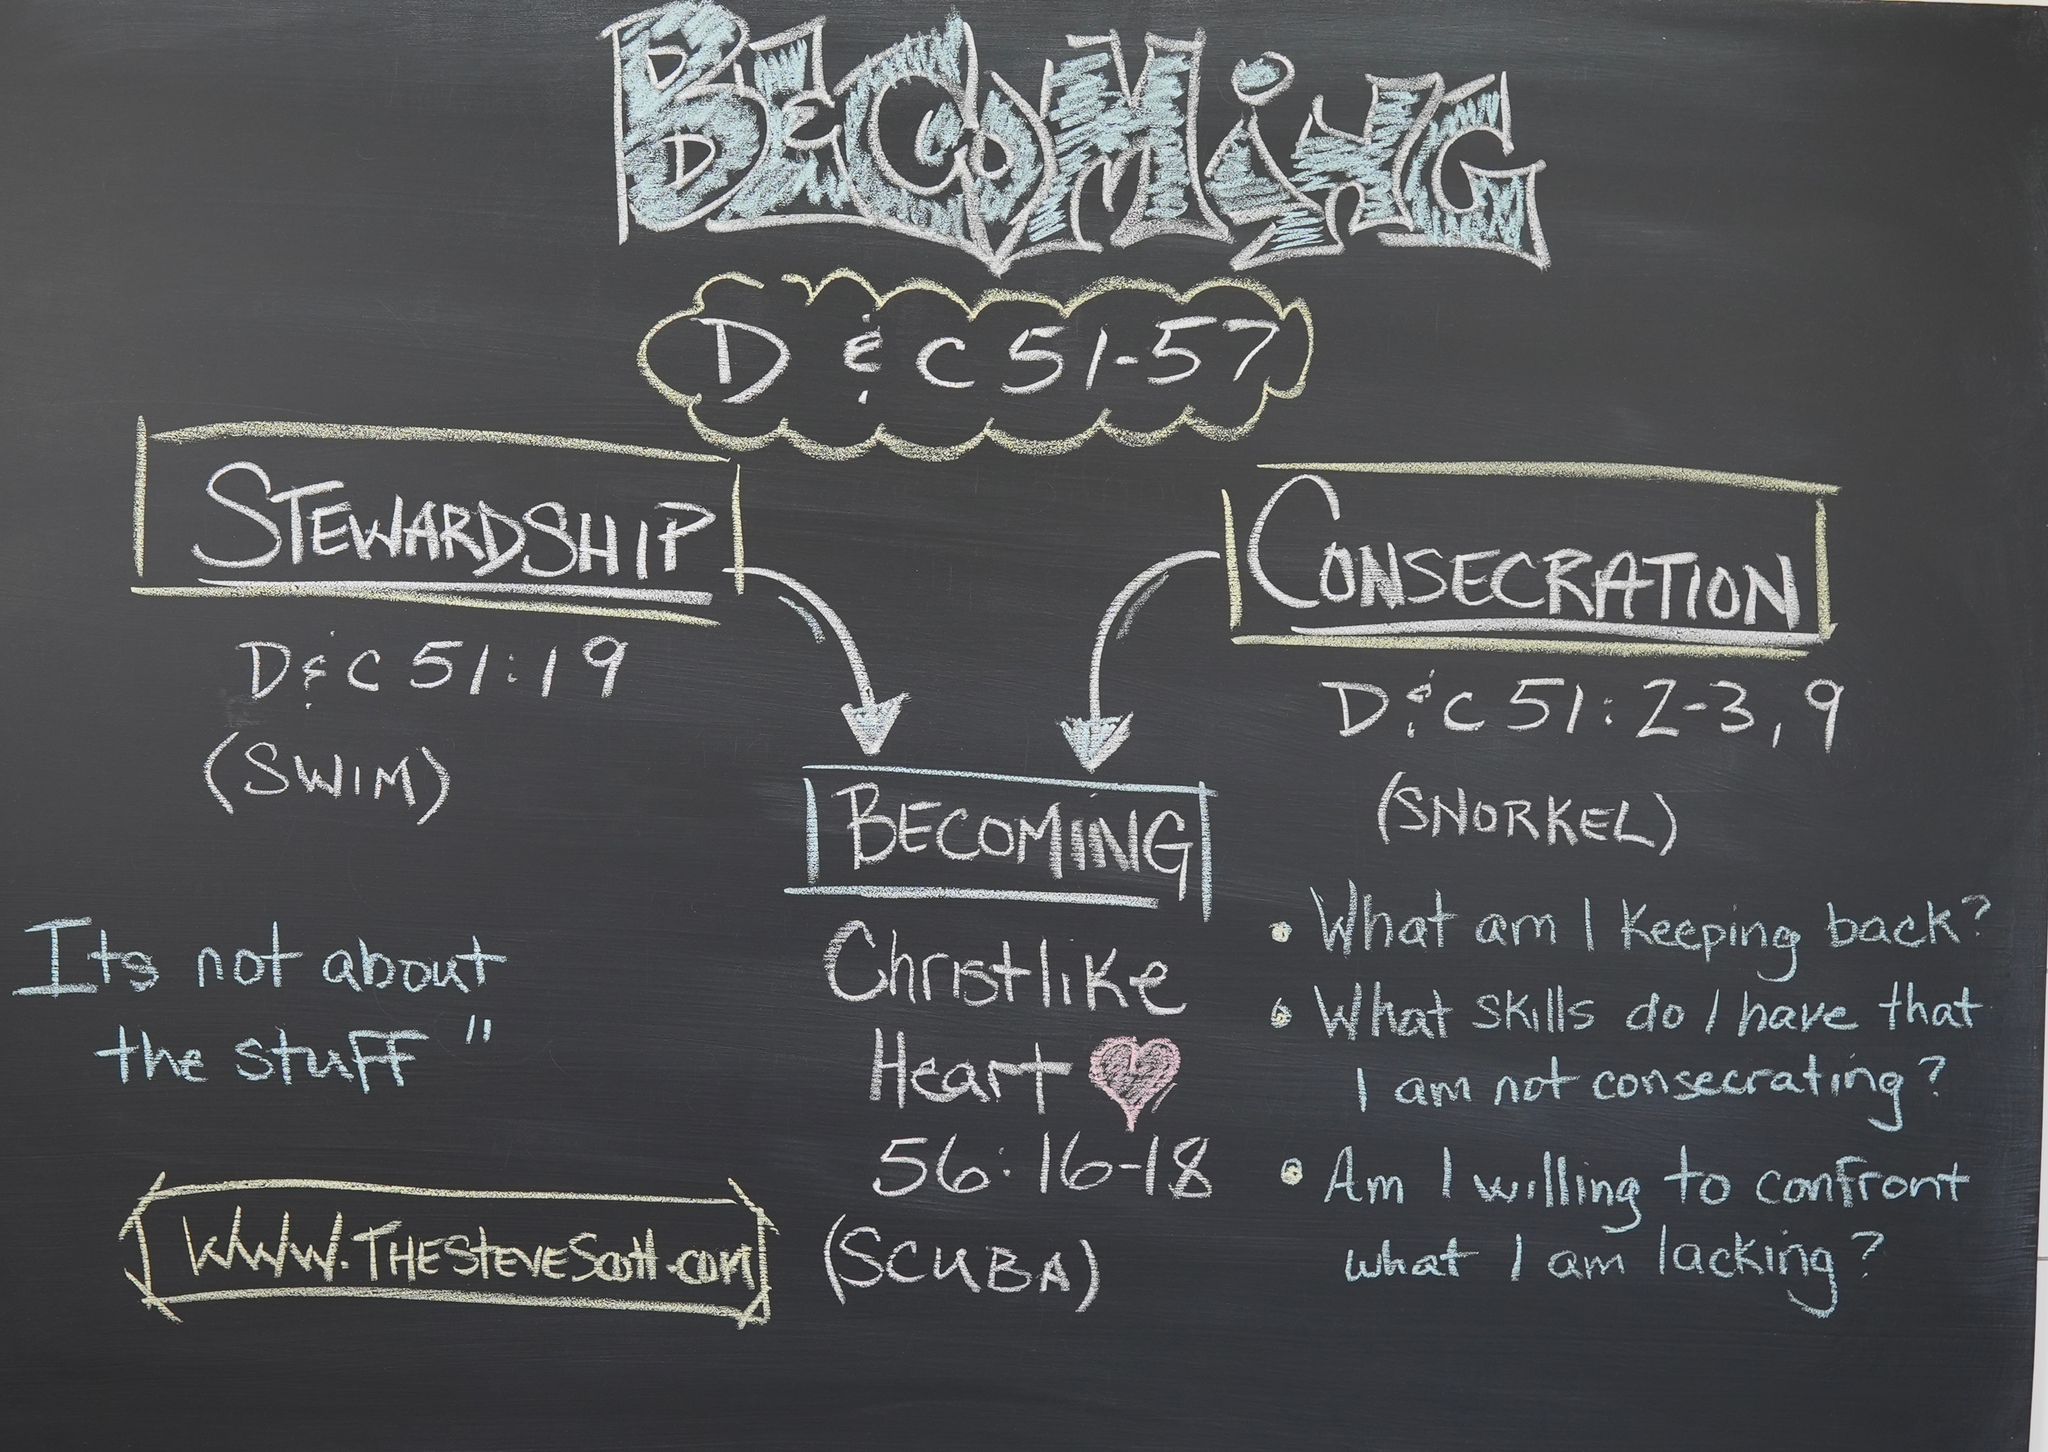 BECOMiNG
D & C 51-57
STEWARDSHIP
D&C 51:19
(SWIM)
Its not about
the stuff"
www.THESTEVEScott.com
BECOMiNG
Christlike
Heart
56:16-18
(SCUBA)
CONSECRATION
D&C 51:2-3,9
(SNORKEL)
• What am I keeping back?
• What skills do I have that
I am not consecrating?
• Am I willing to confront
what I am lacking?